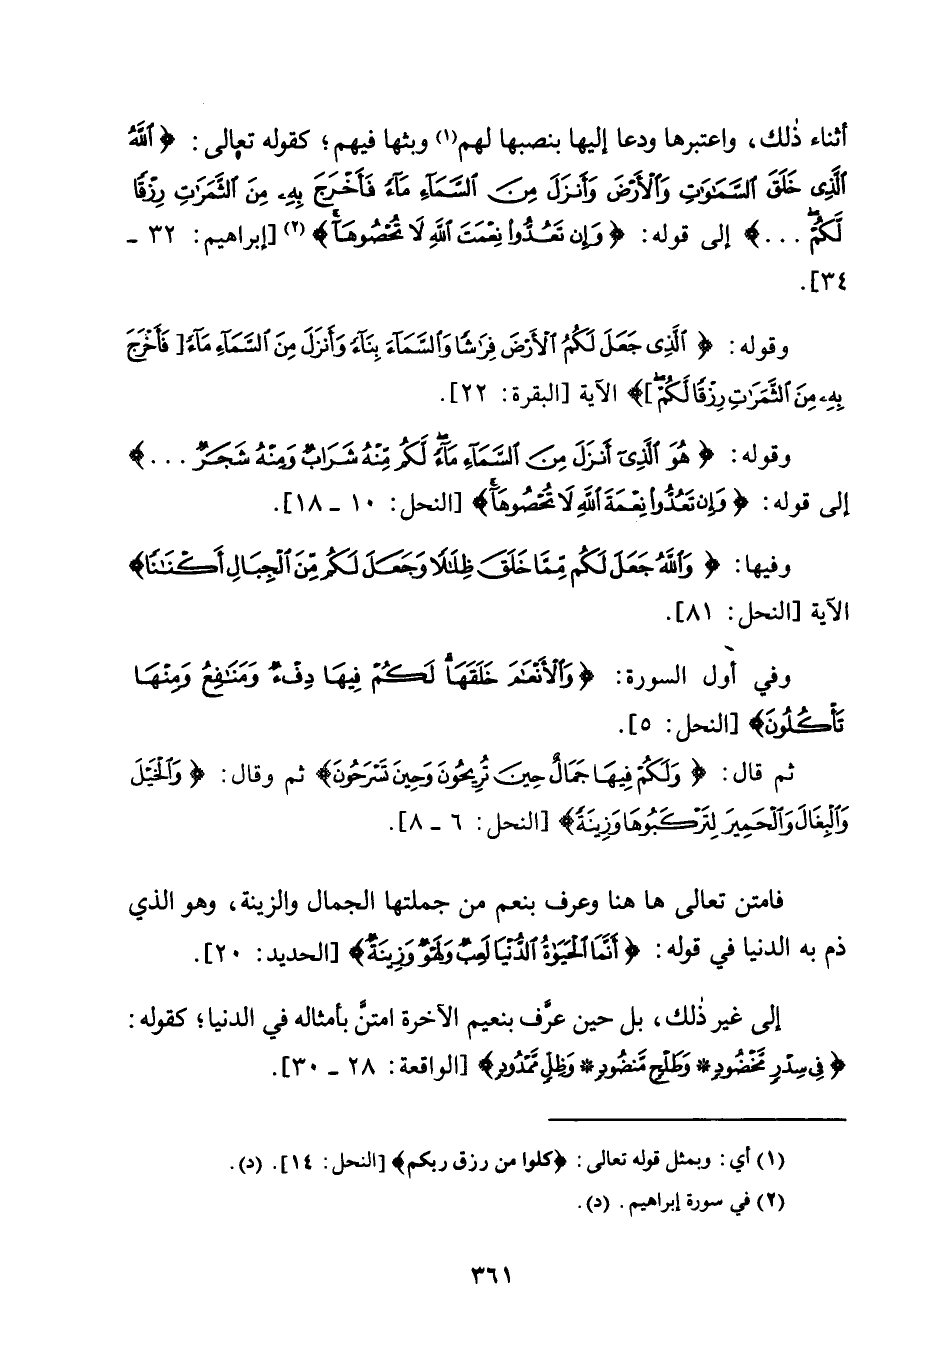 أثناء ذٰلك، واعتبرها ودعا إليها بنصبها لهم(١) وبثها فيهم؛ كقوله تعالى: ﴿ٱللَّهُ
ٱلَّذِى خَلَقَ ٱلسَّمَٰوَٰتِ وَٱلْأَرْضَ وَأَنزَلَ مِنَ ٱلسَّمَآءِ مَآءً فَأَخْرَجَ بِهِۦ مِنَ ٱلثَّمَرَٰتِ رِزْقًا
لَّكُمْۖ ...﴾ إلى قوله: ﴿وَإِن تَعُدُّوا۟ نِعْمَتَ ٱللَّهِ لَا تُحْصُوهَآۗ﴾(٢) [إبراهيم: ٣٢ ـ
٣٤].
وقوله: ﴿ٱلَّذِى جَعَلَ لَكُمُ ٱلْأَرْضَ فِرَٰشًا وَٱلسَّمَآءَ بِنَآءً وَأَنزَلَ مِنَ ٱلسَّمَآءِ مَآءً [فَأَخْرَجَ
بِهِۦ مِنَ ٱلثَّمَرَٰتِ رِزْقًا لَّكُمْۖ]﴾ الآية [البقرة: ٢٢].
وقوله: ﴿هُوَ ٱلَّذِىٓ أَنزَلَ مِنَ ٱلسَّمَآءِ مَآءًۖ لَّكُم مِّنْهُ شَرَابٌ وَمِنْهُ شَجَرٌ ...﴾
إلى قوله: ﴿وَإِن تَعُدُّوا۟ نِعْمَةَ ٱللَّهِ لَا تُحْصُوهَآۗ﴾ [النحل: ١٠ ـ ١٨].
وفيها: ﴿وَٱللَّهُ جَعَلَ لَكُم مِّمَّا خَلَقَ ظِلَٰلًا وَجَعَلَ لَكُم مِّنَ ٱلْجِبَالِ أَكْنَٰنًا﴾
الآية [النحل: ٨١].
وفي أول السورة: ﴿وَٱلْأَنْعَٰمَ خَلَقَهَاۗ لَكُمْ فِيهَا دِفْءٌ وَمَنَٰفِعُ وَمِنْهَا
تَأْكُلُونَ﴾ [النحل: ٥].
ثم قال: ﴿وَلَكُمْ فِيهَا جَمَالٌ حِينَ تُرِيحُونَ وَحِينَ تَسْرَحُونَ﴾ ثم وقال: ﴿وَٱلْخَيْلَ
وَٱلْبِغَالَ وَٱلْحَمِيرَ لِتَرْكَبُوهَا وَزِينَةً﴾ [النحل: ٦ ـ ٨].
فامتن تعالى ها هنا وعرف بنعم من جملتها الجمال والزينة، وهو الذي
ذم به الدنيا في قوله: ﴿أَنَّمَا ٱلْحَيَوٰةُ ٱلدُّنْيَا لَعِبٌ وَلَهْوٌ وَزِينَةٌ﴾ [الحديد: ٢٠].
إلى غير ذٰلك، بل حين عرَّف بنعيم الآخرة امتنَّ بأمثاله في الدنيا؛ كقوله:
﴿فِى سِدْرٍ مَّخْضُودٍ* وَطَلْحٍ مَّنضُودٍ* وَظِلٍّ مَّمْدُودٍ﴾ [الواقعة: ٢٨ ـ ٣٠].
(١) أي: وبمثل قوله تعالى: ﴿كلوا من رزق ربكم﴾ [النحل: ١٤]. (د).
(٢) في سورة إبراهيم. (د).
٣٦١